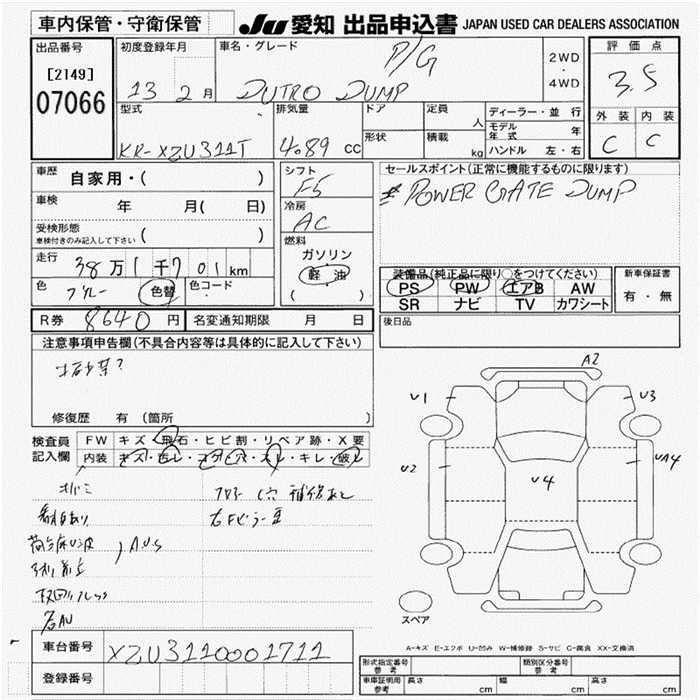 車内保管・守衛保管
JU 愛知 出品申込書 JAPAN USED CAR DEALERS ASSOCIATION
出品番号
[2149]
07066
初度登録年月
13 2 月
車名・グレード
P/G
DUTRO DUMP
2WD
・
4WD
評価点
3.5
外装 内装
C C
型式
KR-XZU311T
排気量
4.89 cc
ドア
形状
定員
人
積載
kg
ディーラー・並行
モデル年式 年
ハンドル 左・右
車歴
自家用・( )
車検
年 月( 日)
受検形態
車検付きのみ記入して下さい ( )
走行
38 万 1 千 7 0 1 km
色
ブルー 色替
色コード
シフト
F5
冷房
AC
燃料
ガソリン
軽油
( )
セールスポイント(正常に機能するものに限ります)
POWER GATE DUMP
装備品(純正品に限り○をつけてください)
PS PW エアB AW
SR ナビ TV カワシート
新車保証書
有・無
後日品
R券 8640 円
名変通知期限 月 日
注意事項申告欄(不具合内容等は具体的に記入して下さい)
修復歴 有(箇所 )
検査員
記入欄
FW キズ・飛石・ヒビ割・リペア跡・X要
内装 キズ・汚レ・コゲ・穴・スレ・キレ・破レ
A2
U1
U3
U2
UA4
U4
スペア
A-キズ E-エクボ U-凹み W-補修跡 S-サビ C-腐食 XX-交換済
車台番号
XZU3110001711
登録番号
形式指定番号
参考
類別区分番号
参考
車庫証明用
参考
長さ cm
幅 cm
高さ cm